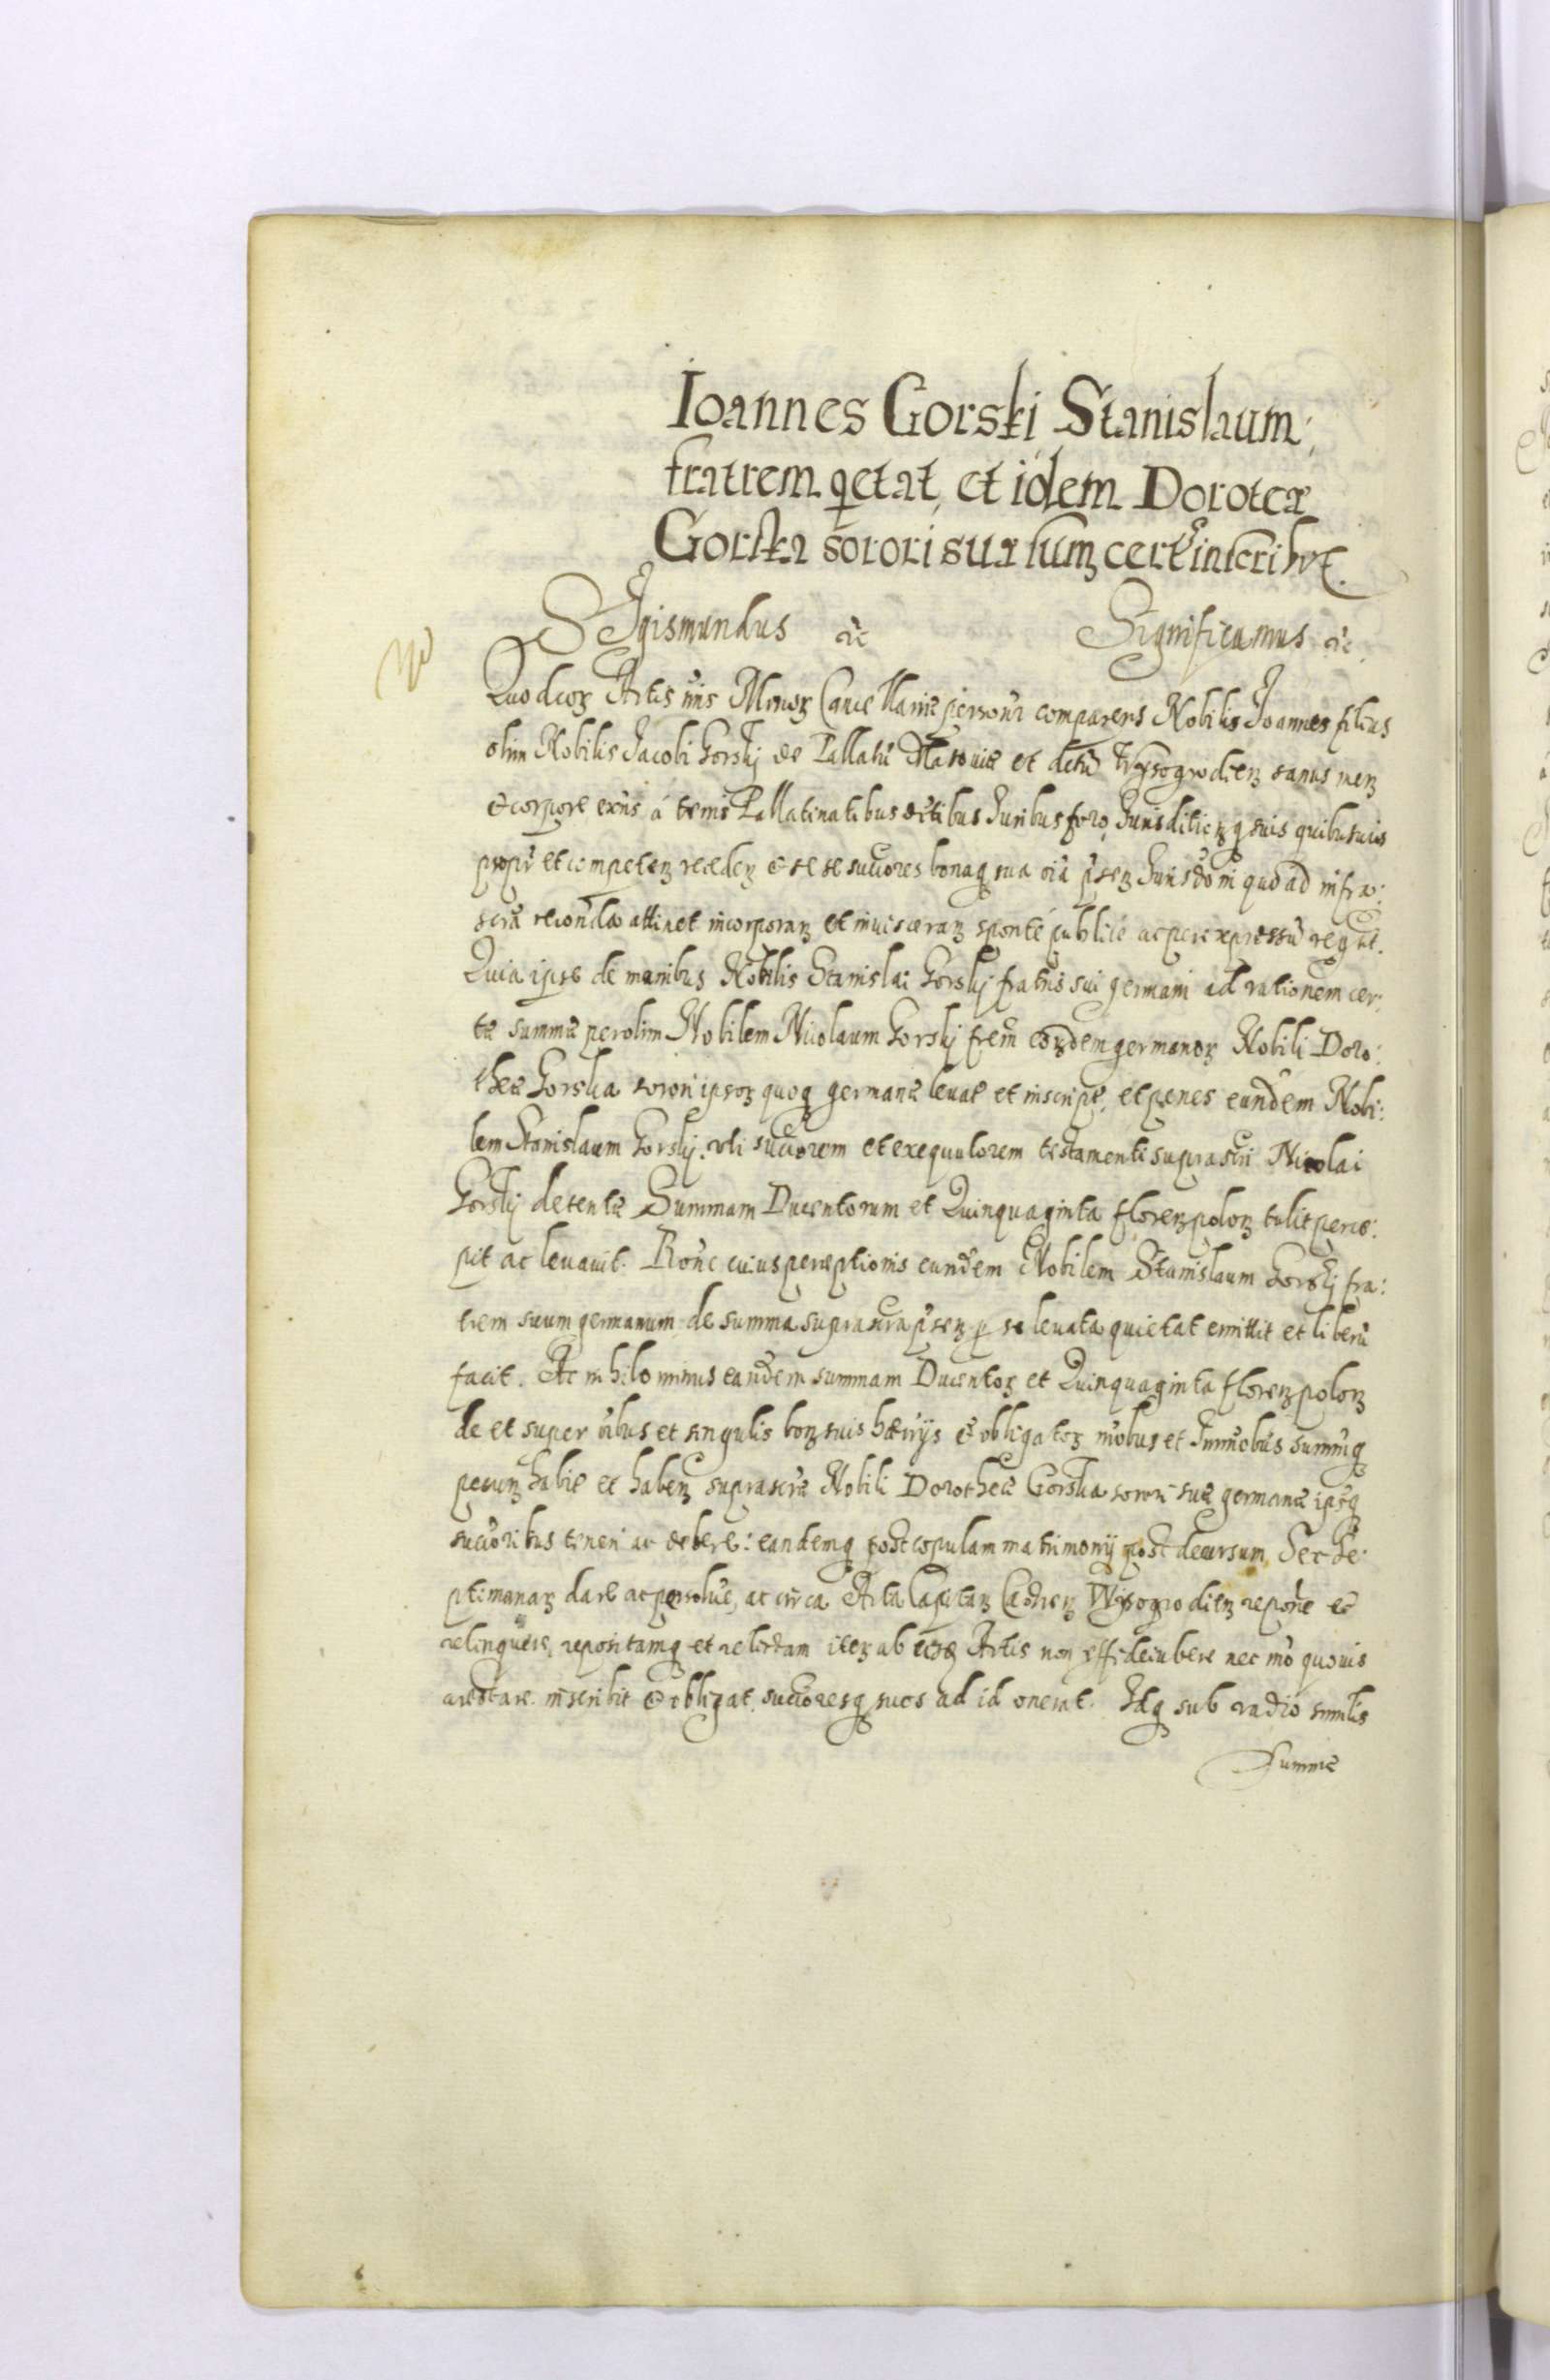 Ioannes Gorski Stanislaum
fratrem qetat, et idem Doroteæ
Gorska sorori suæ sumȝ certȩ inscribit.
Sigismundus &c Significamus &c.
Quod cor Actis nris Minor Cancellariæ personr comparens Nobilis Joannes filius
olim Nobilis Jacobi Gorskj de Pallatu Masouiæ et dctu Wyssogrodien sanus men
& corpore exns á terris Pallatinatibus dctibus Juribus foro Jurisditionq suis quibusuis
propr et competen receden & se se succores bonaq sua oia pnsen Jurisdoni quo ad infra:
scra reconda attinet incorporan et inuisceran sponté publicé ac per expressu recgt.
Quia ipse de manibus Nobilis Stanislai Gorskj fratris sui germani ad rationem cer:
tæ summæ per olim Nobilem Nicolaum Gorskj frem eordem germanor Nobili Doro:
theæ Gorska sorori ipsor quoq germanæ leuat et inscript, et penes eundem Nobi:
lem Stanislaum Gorskj. vti succorem et exequutorem testamenti suprascri Nicolai
Gorskj detentæ Summam Ducentorum et Quinquaginta floren polon tulit perce:
pit ac leuauit. Rone cuius perceptionis eundem Nobilem Stanislaum Gorskj fra:
trem suum germanum de summa suprascra pnsen p se leuata quietat emittit et liberu
facit. Ac nihilominus eandem summam Ducentor et Quinquaginta floren polon
de et super oibus et singulis bon suis hærijs & obligator mobus et Immobus summq
pecun habit et haben suprascræ Nobili Dorotheæ Gorska sorori suæ germanæ ipsq
succoribus teneri ac debere: eandemq post copulam matrimonij post decursum Sex Se:
ptimanar dare ac persolue, ac circa Acta Capitan Castren Wyssogrodien repone &
relinquere, repositamq et relictam iter ab ijsdem Actis non recipere nec mo quouis
arestare inscribit & obligat succoresq suos ad id onerat. Idq sub vadio similis
Summæ